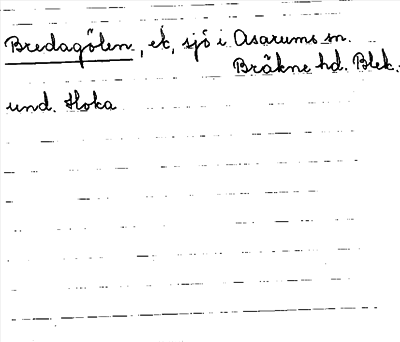 Bredagölen, ek, sjö i Asarums sn.
Bräkne hd. Blek.
und. Hoka